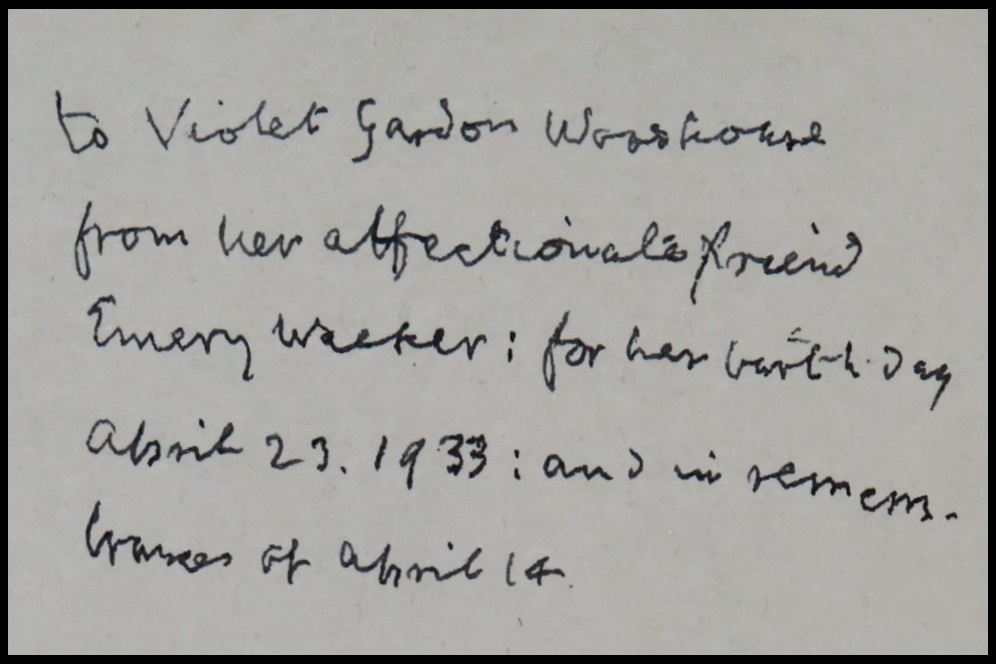 to Violet Gordon Woodhouse
from her affectionate friend
Emery Walker: for her birthday
April 23. 1933: and in remem-
brance of April 14